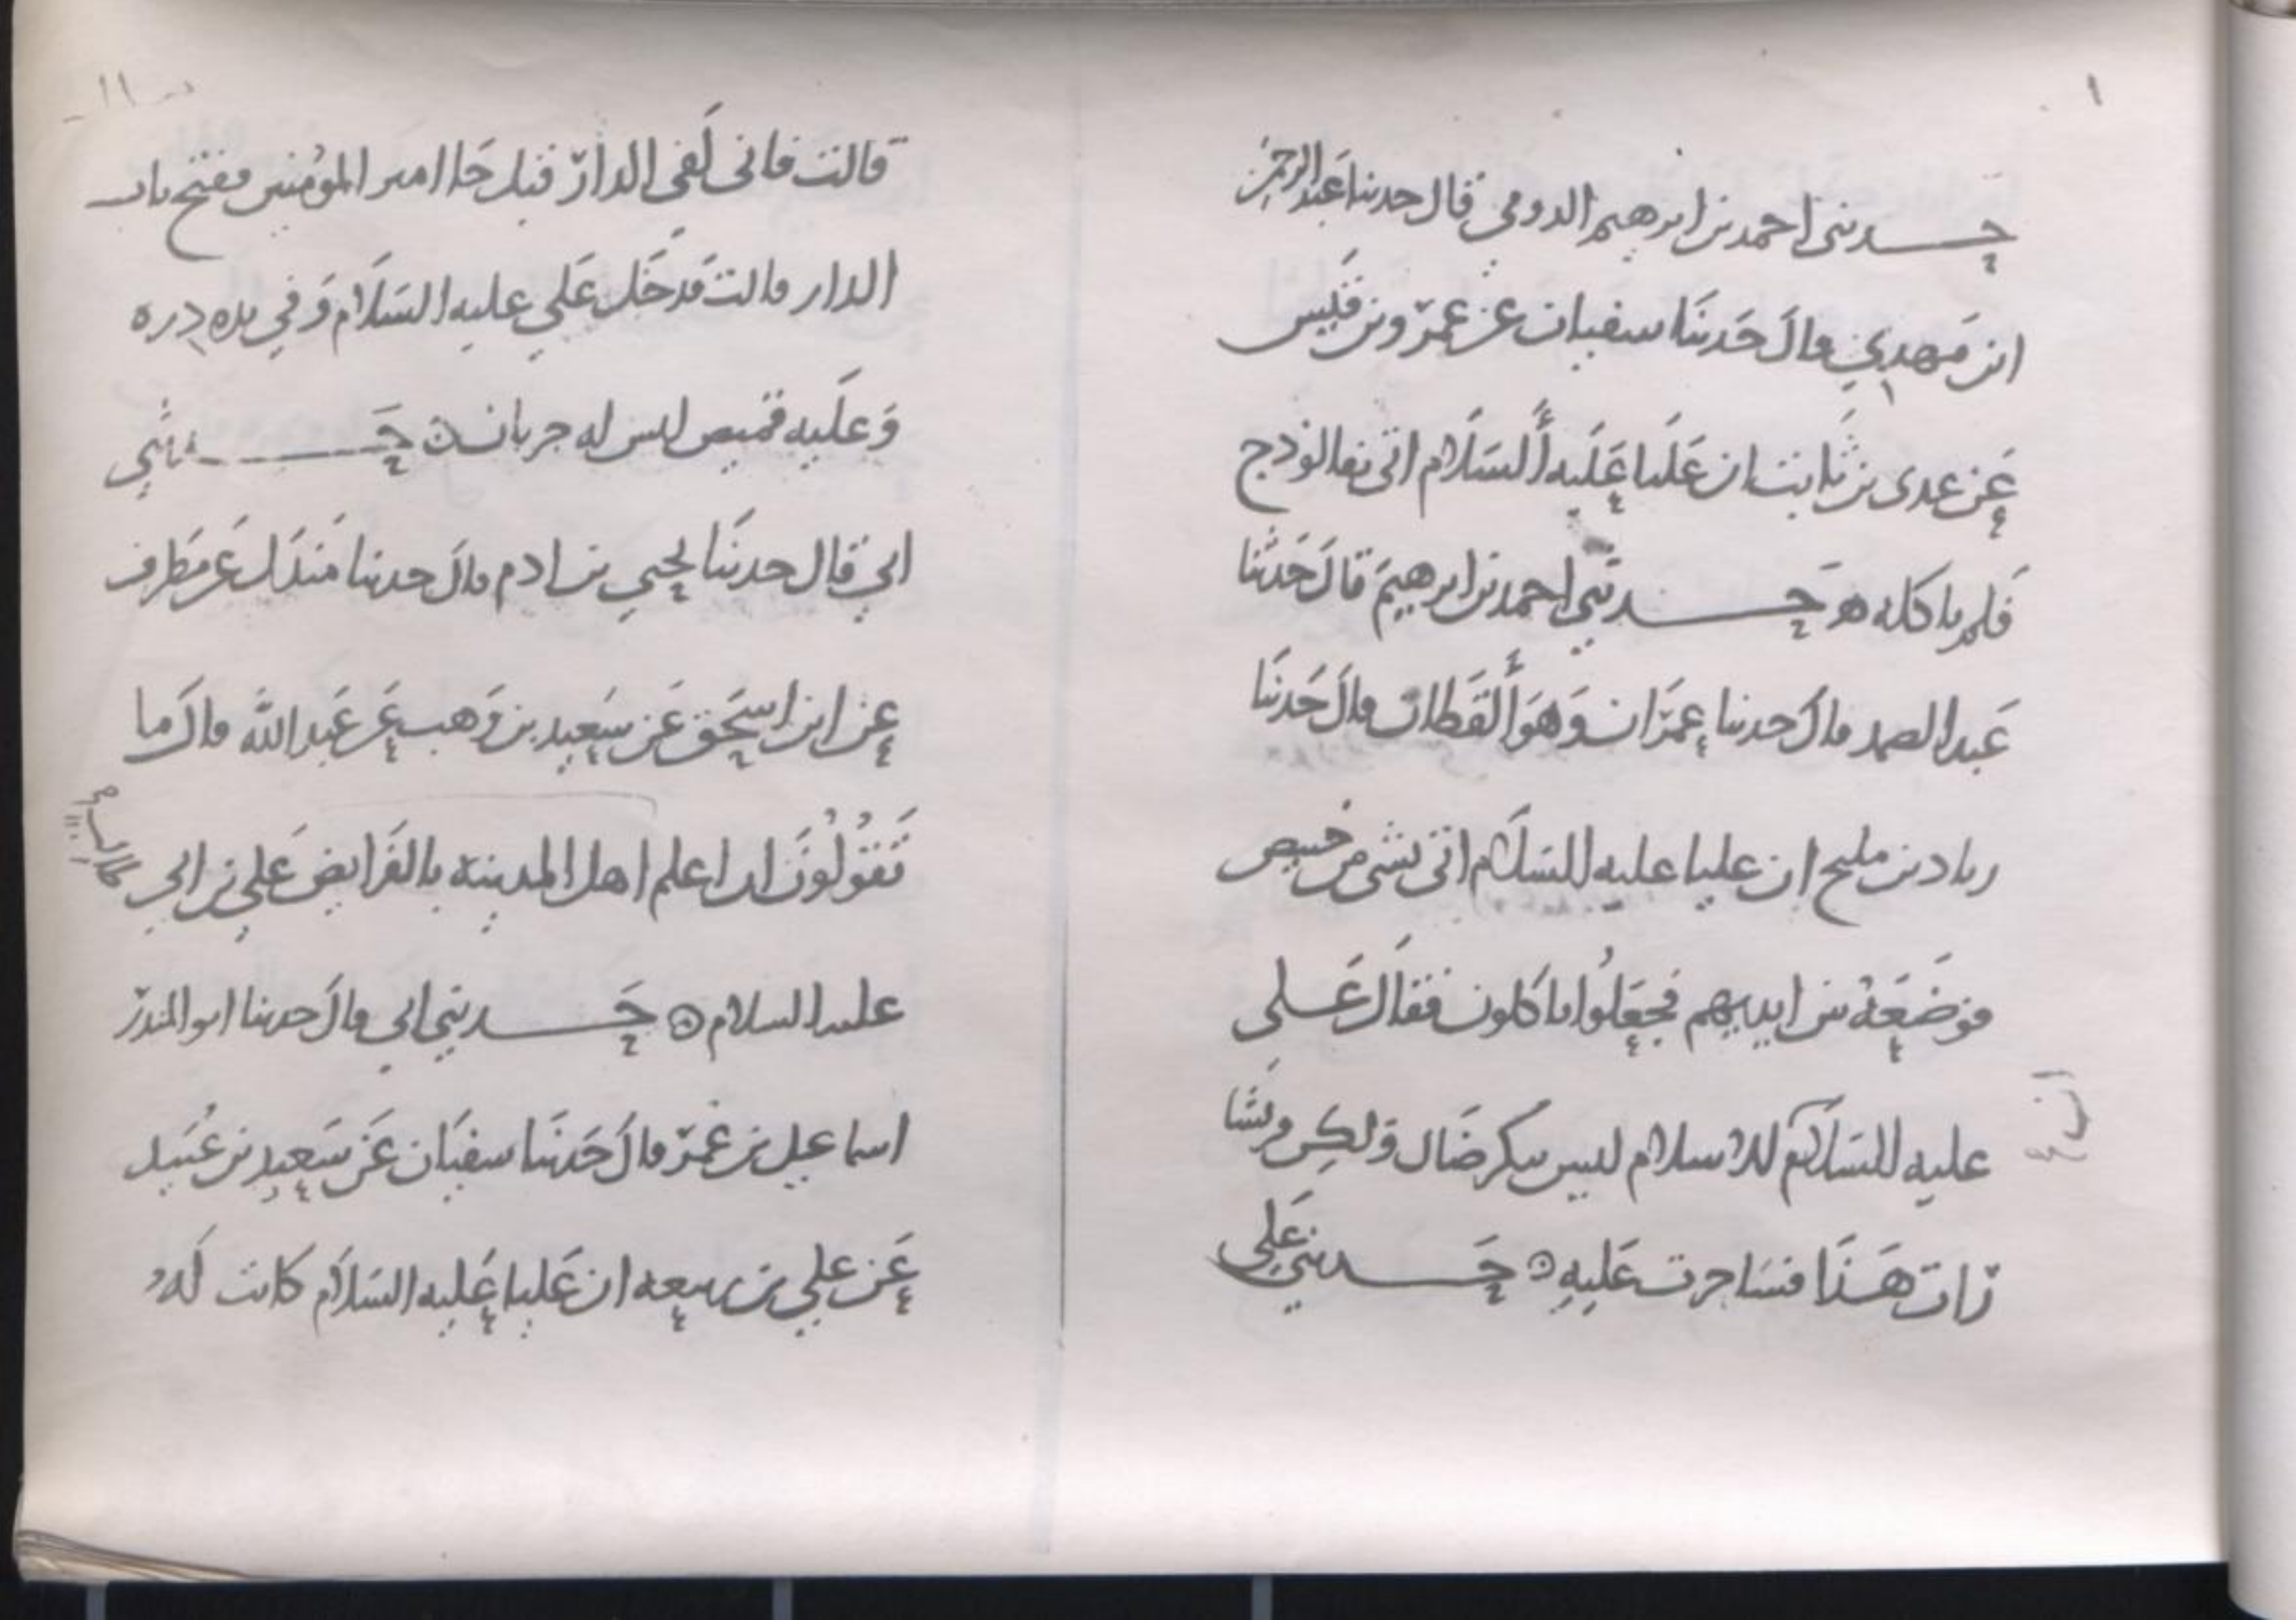 ١
حدثنى احمد بن ابرهيم الدومي قال حدثنا عبد الرحمن
ابن مهدي قال حدثنا سفيان عن عمرو بن قيس
عن عدى بن ثابت ان عليا عليه السلام اتى بفالوذج
فلم ياكله ه حدثني احمد بن ابرهيم قال حدثنا
عبد الصمد قال حدثنا عمران وهو القطان قال حدثنا
زياد بن مليح ان عليا عليه السلام اتى بشى من خبيص
فوضعه بين ايديهم فجعلوا ياكلون فقال على
عليه السلام للاسلام ليس ببكر ضال ولكن قريشا
رات هذا فتناحرت عليه ه حدثني علي
١١
قالت فانى لفى الدار قبل جا امير المؤمنين ففتح باب
الدار قالت فدخل علي عليه السلام وفي يده دره
وعليه قميص ليس له جربان ه حدثني
ابي قال حدثنا يحيي بن ادم قال حدثنا مندل عن مطرف
عن ابن اسحق عن سعيد بن وهب عن عبد الله قال ما
تقولون ان اعلم اهل المدينة بالفرايض علي بن ابي
عليه السلام ه حدثني ابي قال حدثنا ابو المنذر
اسماعيل بن عمر قال حدثنا سفيان عن سعيد بن عبيد
عن علي بن ربيعه ان عليا عليه السلام كانت له